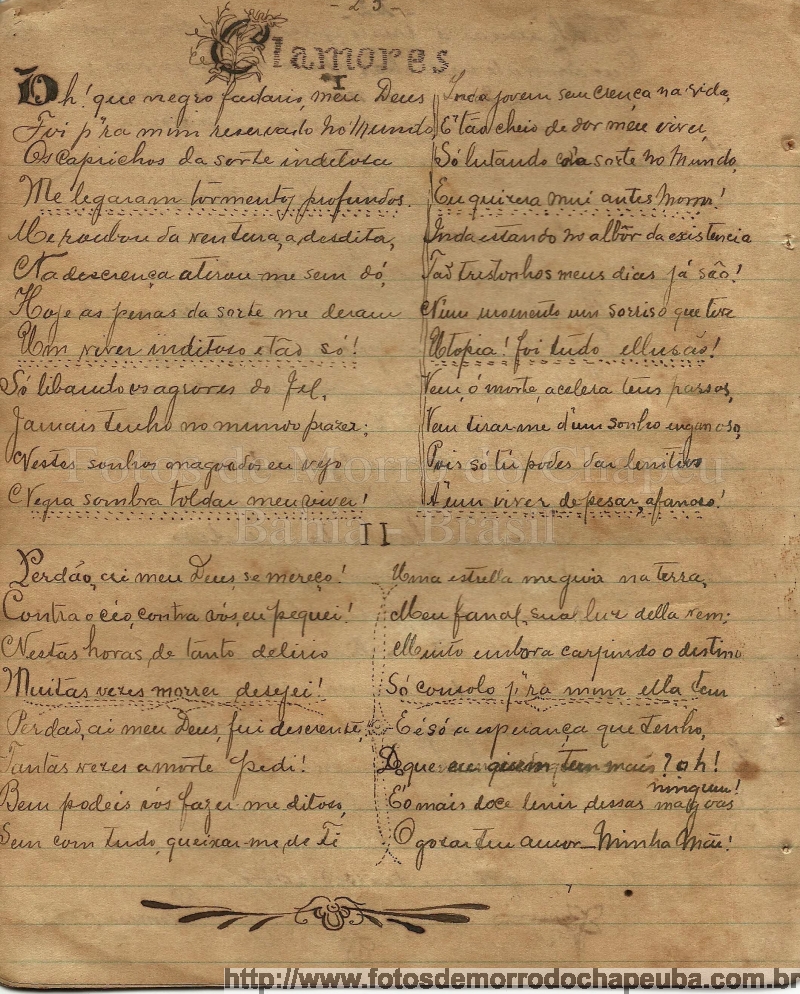 - 23 -
Clamores
I
Oh! que negro fadario, meu Deus
Foi p'ra mim reservado no Mundo
Os caprichos da sorte inditosa
Me legaram tormentos profundos.
Me roubou da ventura, a desdita,
Na descrença atirou-me sem dó,
Hoje as penas da sorte me deram
Um viver inditoso e tão só!
Só libando os agrores do fel,
Jamais tenho no mundo prazer:
Nestes sonhos magoados eu vejo
Negra sombra toldar meu viver!
Inda jovem sem crença na vida,
E' tão cheio de dor meu viver,
Só lutando co'a sorte no Mundo,
Eu quizera mui antes morrer!
Inda estando no albôr da existencia
Tão tristonhos meus dias já são!
Nem momento um sorriso que tive
Utopia! foi tudo illusão!
Vem, o morte, acelera teus passos,
Vem tirar-me d'um sonho enganoso,
Pois só tu podes dar lenitivo
A' um viver, de pesar, afanoso!
II
Perdão, ai meu Deus, se mereço!
Contra o céo, contra vós, eu pequei!
Nestas horas, de tanto delirio
Muitas vezes morrer desejei!
Perdão, ai meu Deus, fui descrente,
Tantas vezes a morte pedi!
Bem podeis vós fazer-me ditoso,
Sem com tudo, queixar-me, de Ti
Uma estrella me guia na terra,
Meu fanal, sua luz della vem;
Muito embora carpindo o destino
Só consolo p'ra mim ella tem
E é só a esperança que tenho,
De que eu quem tem mais? oh!
ninguem!
E o mais doce lenir, dessas magoas
O gozar teu amor - Minha Mãe!
Fotos de Morro do Chapéu
Bahia - Brasil
http://www.fotosdemorrodochapeuba.com.br